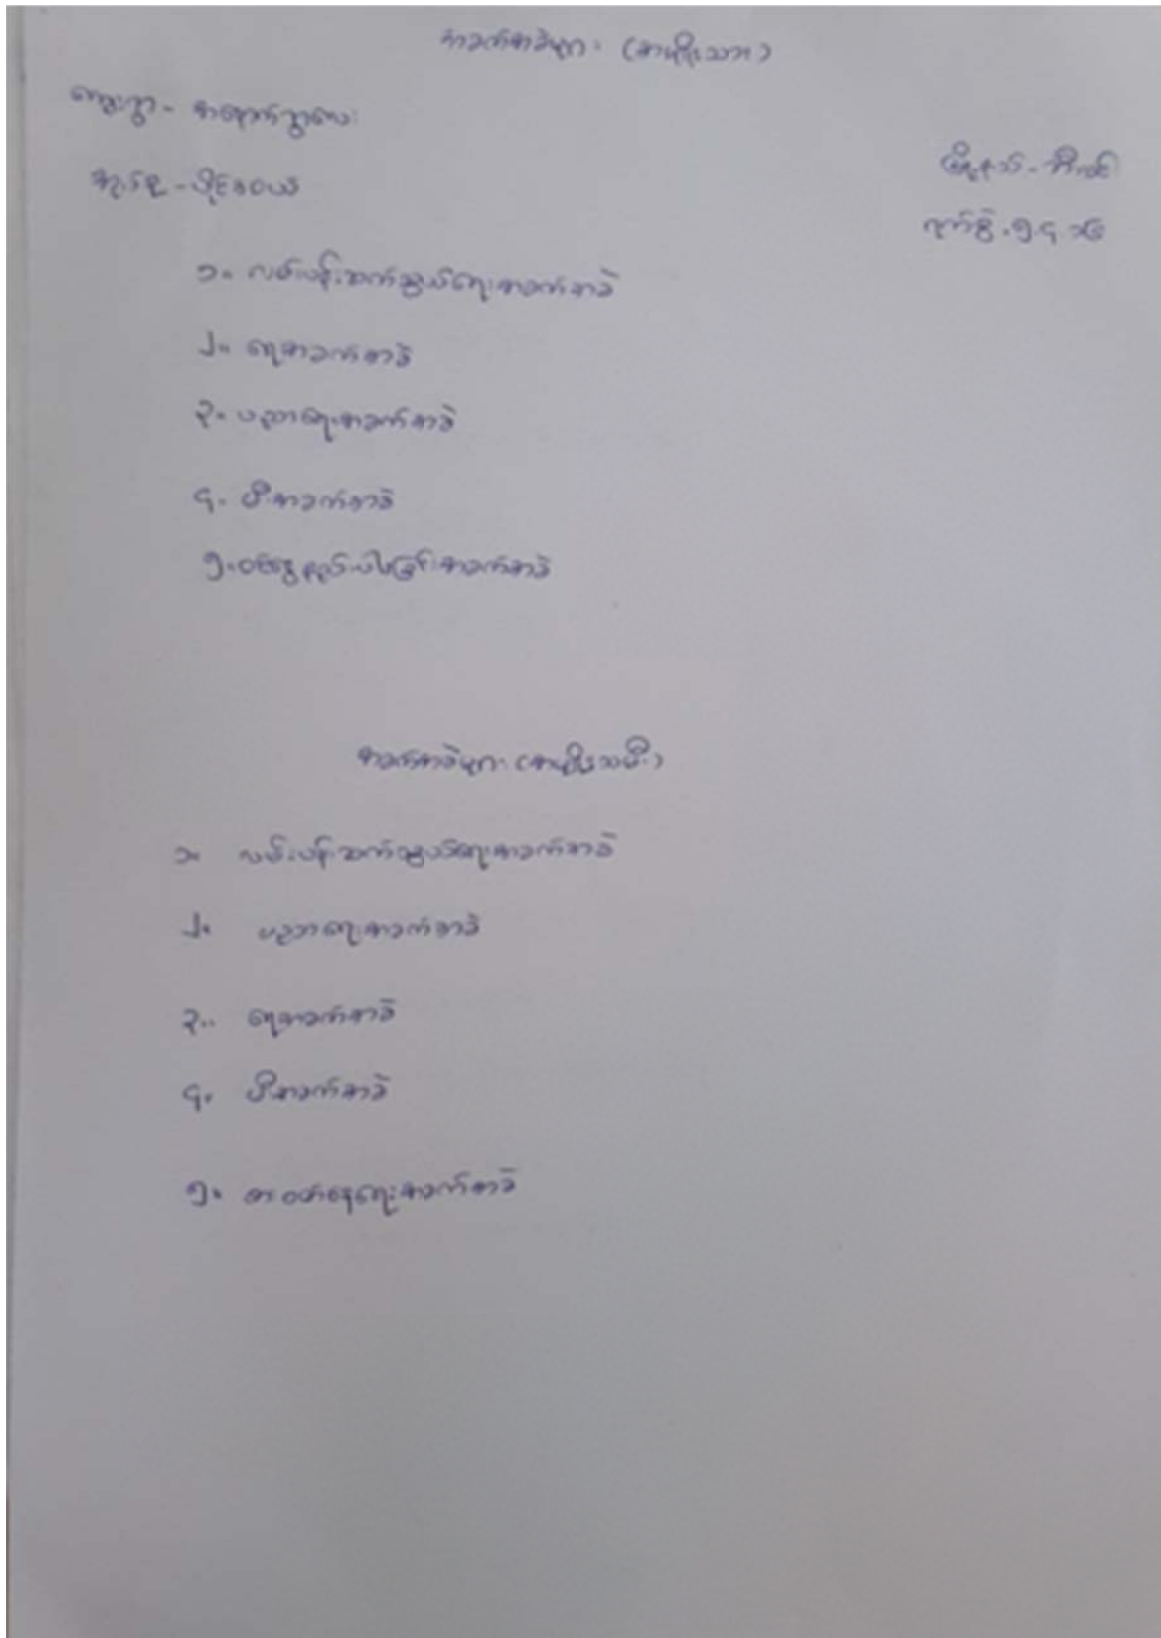 အခက်အခဲများ (အမျိုးသား)
ကျေးရွာ - အနောက်ရွာလေး
အုပ်စု -
မြို့နယ် - ဘီလင်း
ရက်စွဲ . ၅.၄.၁၆
၁။ လမ်းပန်းဆက်သွယ်ရေးအခက်အခဲ
၂။ ရေအခက်အခဲ
၃။ ပညာရေးအခက်အခဲ
၄။ မီးအခက်အခဲ
၅။ ဝင်ငွေနည်းပါးခြင်းအခက်အခဲ
အခက်အခဲများ (အမျိုးသမီး)
၁။ လမ်းပန်းဆက်သွယ်ရေးအခက်အခဲ
၂။ ပညာရေးအခက်အခဲ
၃။ ရေအခက်အခဲ
၄။ မီးအခက်အခဲ
၅။ စားဝတ်နေရေးအခက်အခဲ